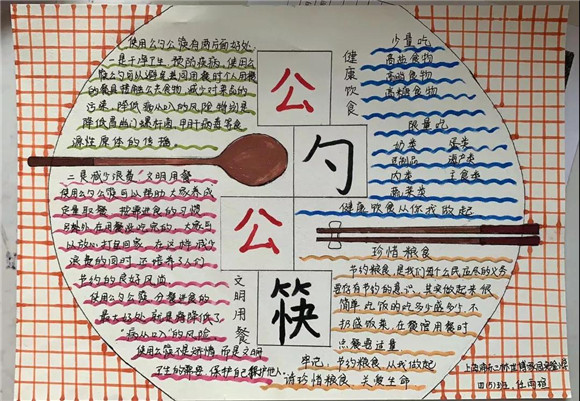 使用公勺公筷有两方面好处
一是干净卫生 预防疾病,使用公
勺公筷可以避免共同用餐时个人用过
的餐具接触公共食物,减少对菜品的
污染,降低病从口入的风险,特别是
降低幽门螺杆菌、甲肝病毒等食
源性原体的传播
二是减少浪费 文明用餐
使用公勺公筷可以帮助大家养成
定量取餐、按需进食的习惯
以放心打包回家,在这样减少
浪费的同时,还培养了人们
节约的良好风尚
使用公勺公筷,分餐进食的
最大好处就是降低了
"病从口入"的风险
使用公筷不是矫情,而是文明
卫生的需要,保护自己保护他人
公
勺
公
筷
健康饮食
文明用餐
少量吃
高盐食物
高脂食物
高糖食物
限量吃
奶类 蛋类
豆制品 水产类
肉类 主食类
蔬菜类
健康饮食从你我做起
珍惜粮食
节约粮食,是我们每个公民应尽的义务
要你有节约的意识,其实做起来很
简单:吃饭时吃多少盛多少,不
扔盛饭菜,在餐馆用餐时
点餐要适量
牢记:节约粮食,从我做起
请珍惜粮食,关爱生命
四(5)班